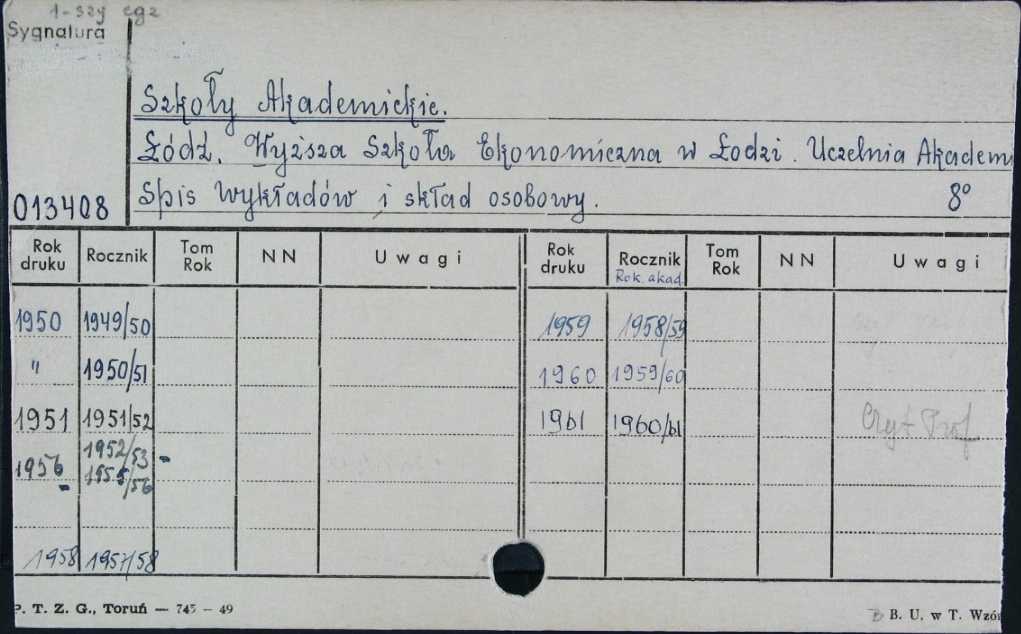 1-szy egz
Sygnatura
Szkoły Akademickie.
Łódź. Wyższa Szkoła Ekonomiczna w Łodzi. Uczelnia Akadem
Spis wykładów i skład osobowy. 8°
013408
Rok druku Rocznik Tom Rok NN Uwagi Rok druku Rocznik Rok akad. Tom Rok NN Uwagi
1950 1949/50 1959 1958/59
" 1950/51 1960 1959/60
1951 1951/52 1961 1960/61
1952/53
1956 1955/56
1958 1957/58
P. T. Z. G., Toruń — 745 — 49 B. U. w T. Wzór